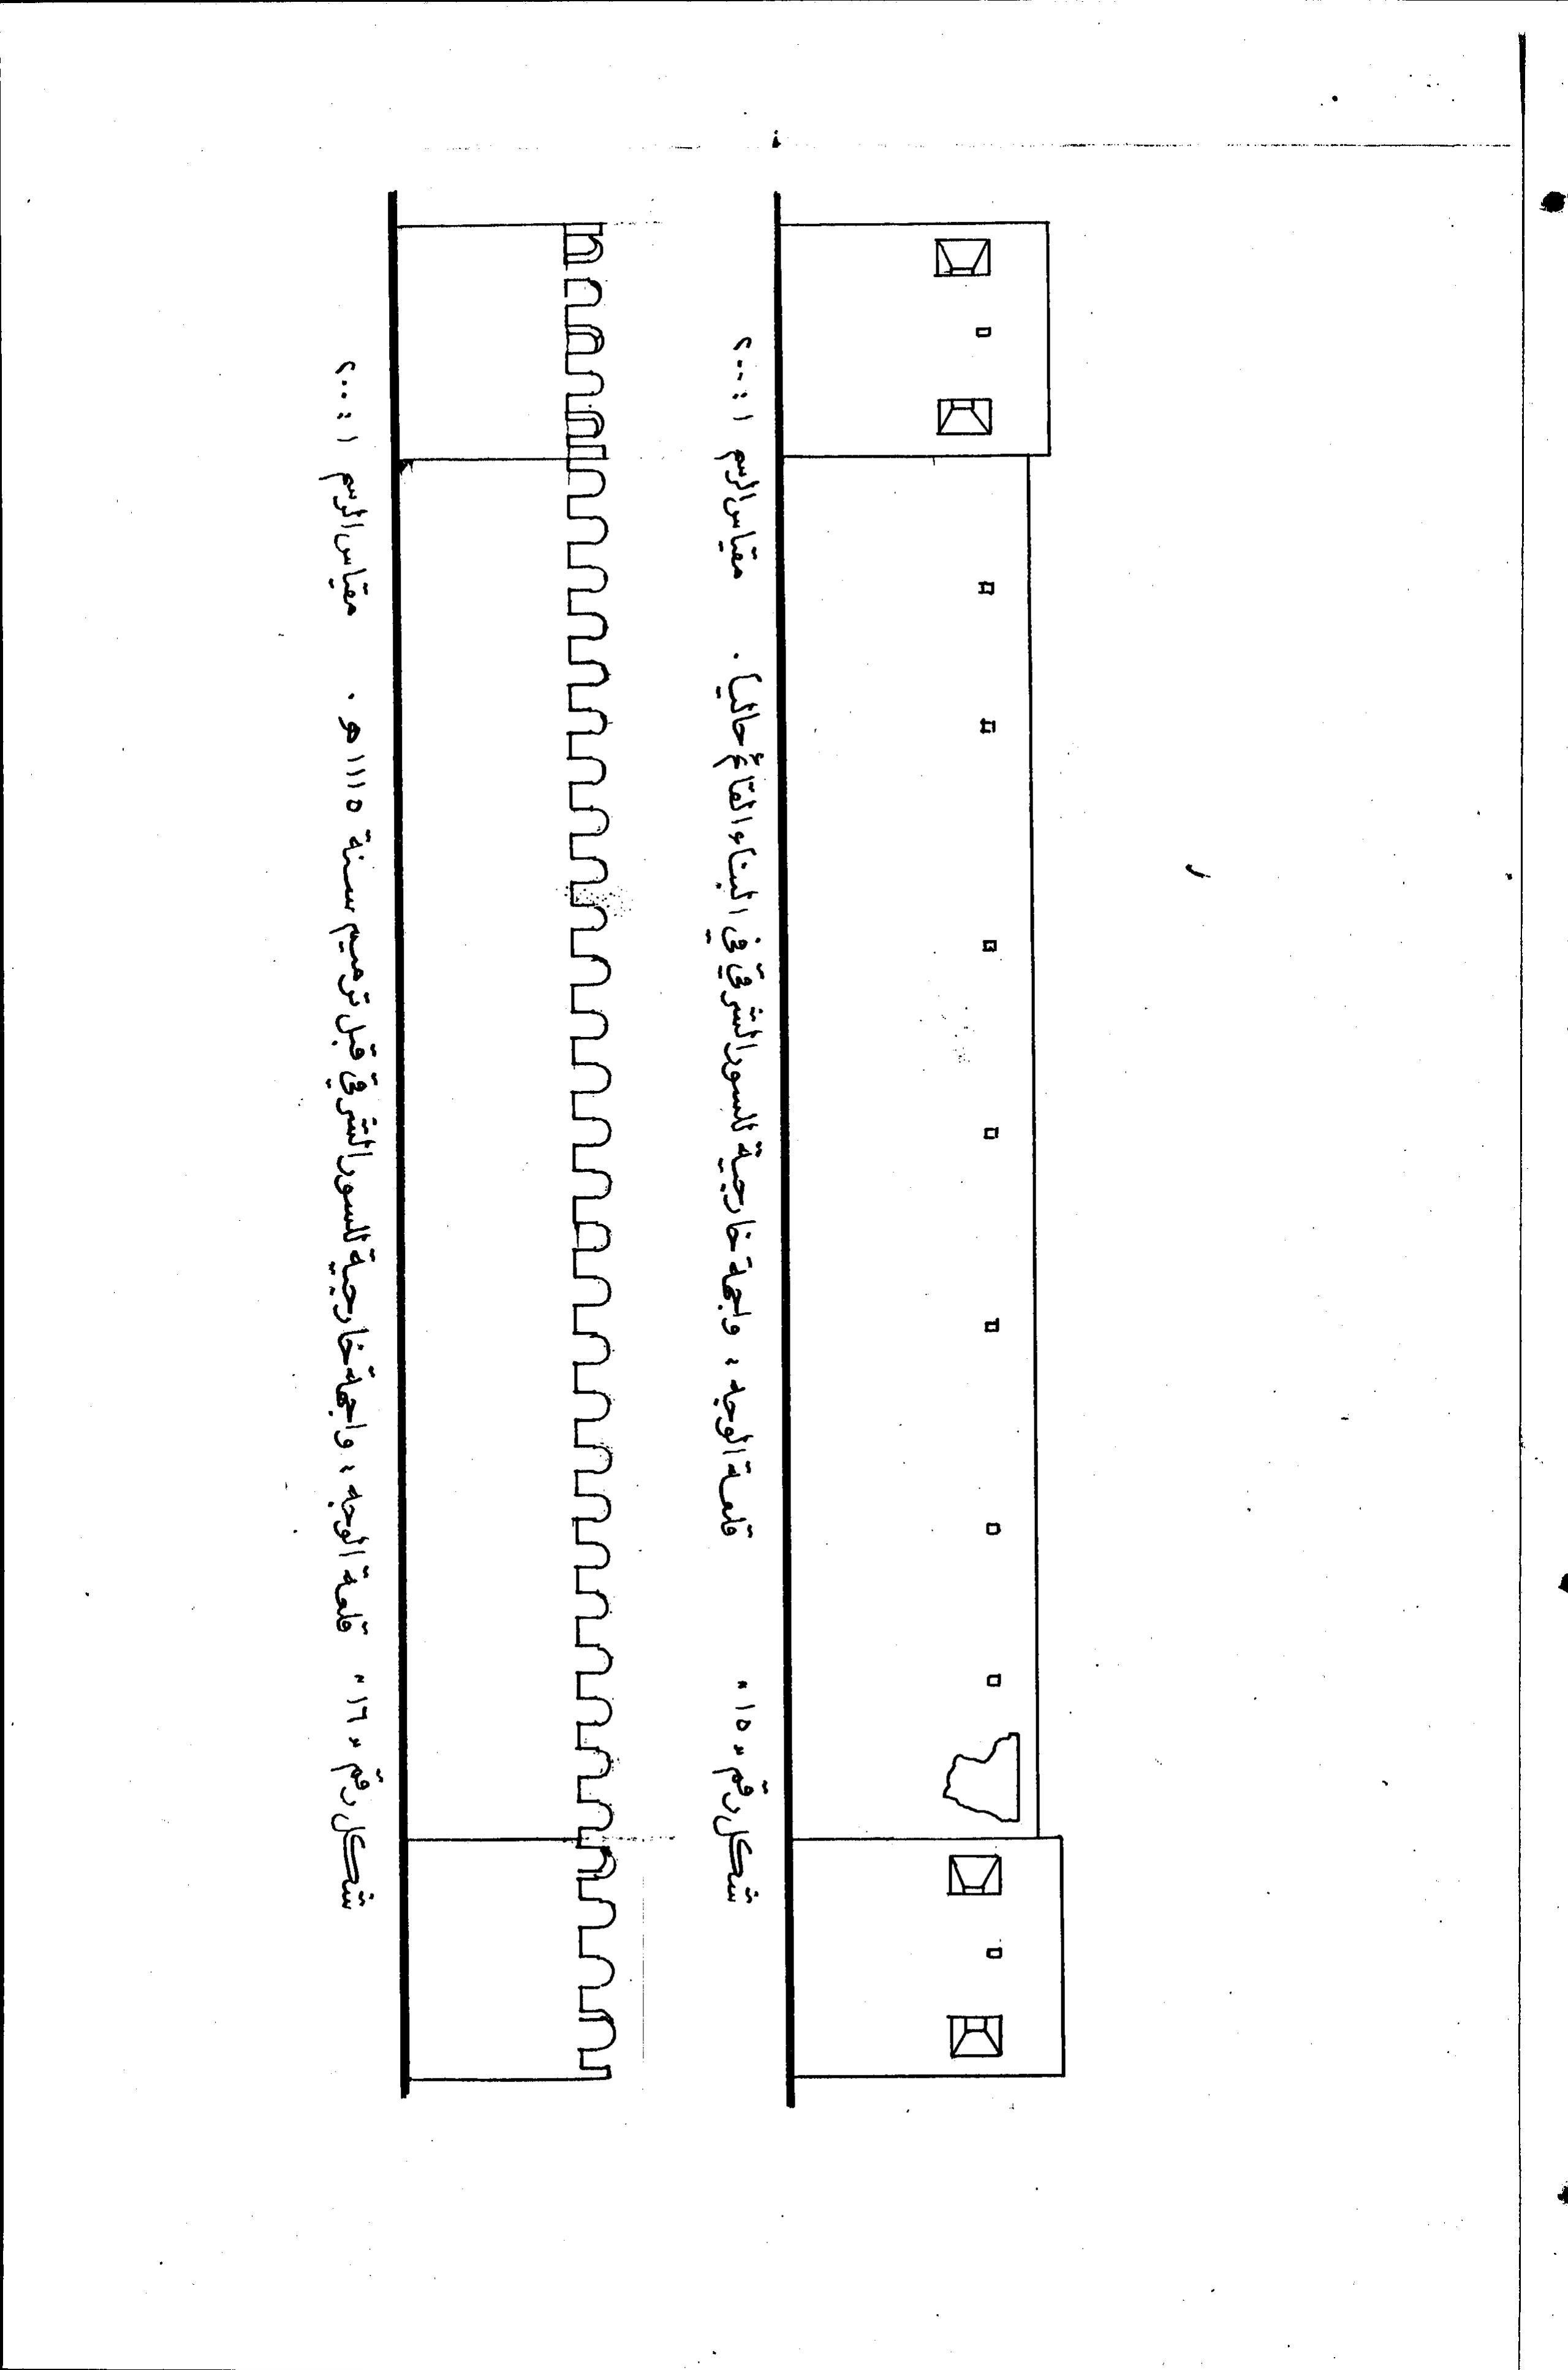 شكل رقم " ١٥ " قلعة الوجه ، واجهة خارجية للسور الشرقي في البناء القائم حاليا . مقياس الرسم ١ : ٢٠٠
شكل رقم " ١٦ " قلعة الوجه ، واجهة خارجية للسور الشرقي قبل ترميم سنة ١١١٥ هـ . مقياس الرسم ١ : ٢٠٠